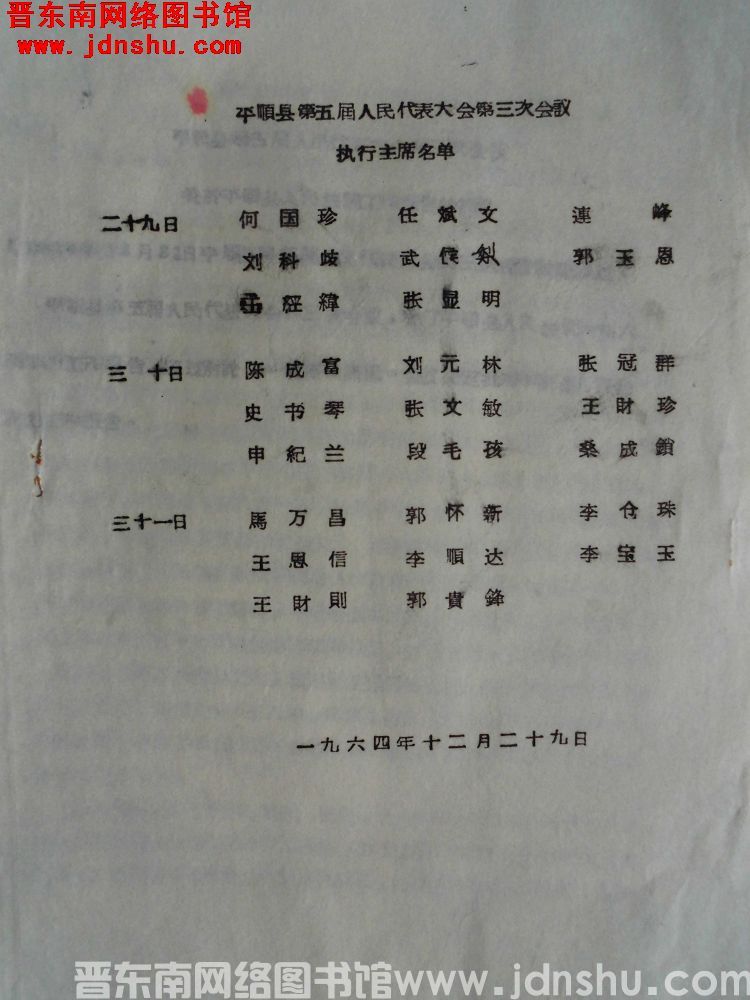 晋东南网络图书馆
www.jdnshu.com
平順县第五届人民代表大会第三次会议
执行主席名单
二十九日 何国珍 任斌文 連峰
刘科歧 武侯剣 郭玉恩
経緯 张显明
三十日 陈成富 刘元林 张冠群
史书琴 张文敏 王財珍
申紀兰 段毛孩 桑成鎖
三十一日 馬万昌 郭怀新 李仓珠
王恩信 李順达 李宝玉
王財則 郭貴鋒
一九六四年十二月二十九日
晋东南网络图书馆www.jdnshu.com